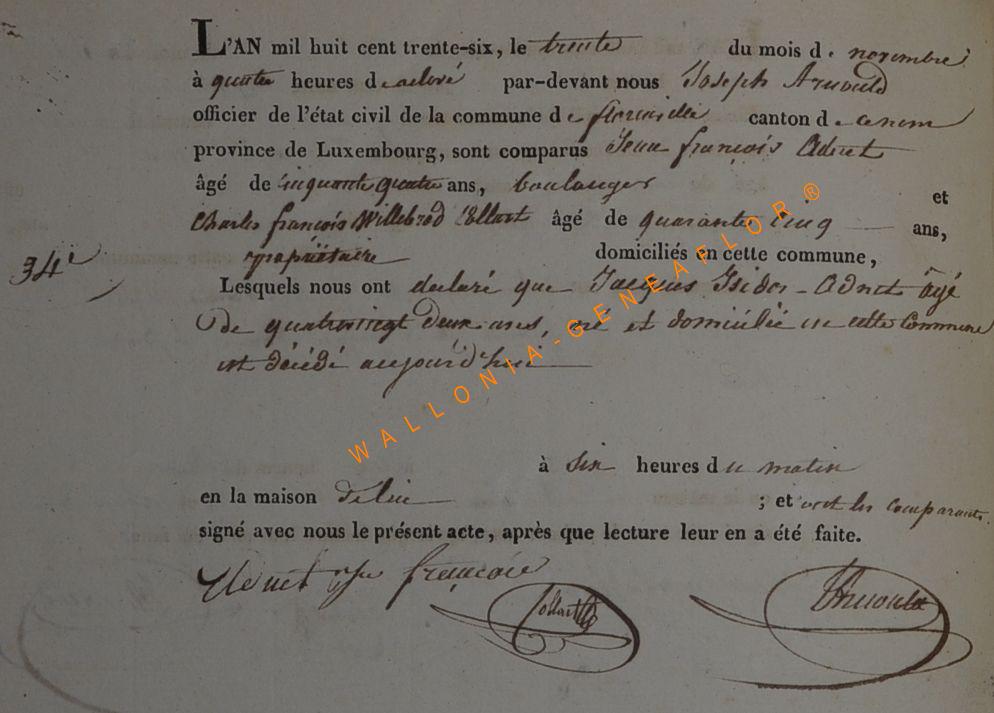 L'AN mil huit cent trente-six, le trente du mois de novembre
à quatre heures de relevé par-devant nous Joseph Arnould
officier de l'état civil de la commune de florenville canton de
province de Luxembourg, sont comparus Jean françois Adnet
âgé de cinquante quatre ans, boulanger et
Charles françois Willebrod Collart âgé de quarante cinq ans,
propriétaire domiciliés en cette commune,
34e
Lesquels nous ont declaré que Jacques Isidor Adnet âgé
De quatrevingt deux ans, né et domicilié en cette Commune
est décédé aujourd'hui
à six heures du matin
en la maison De lui ; et ont les comparants
signé avec nous le présent acte, après que lecture leur en a été faite.
Adnet françois
Collart
Arnould
WALLONIA-GENEAFLOR®